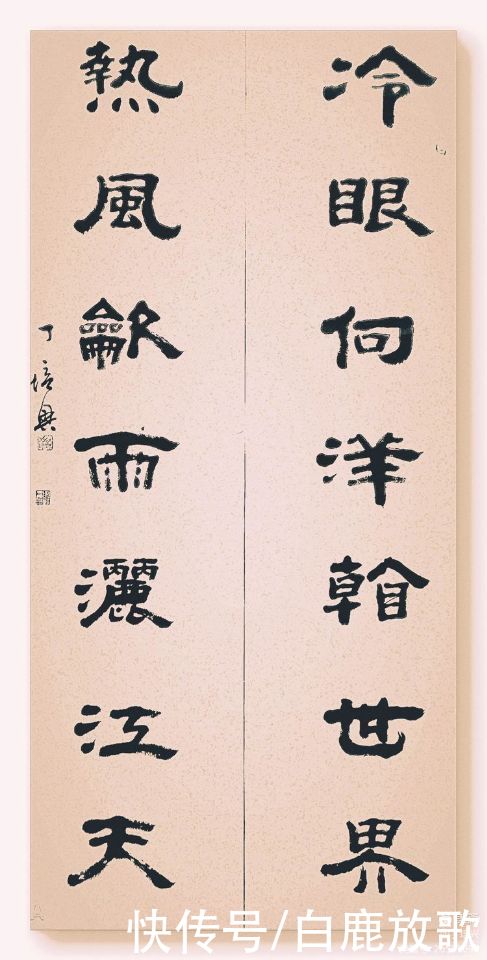 冷眼向洋看世界
熱風龡雨灑江天
丁培興
快传号/白鹿放歌